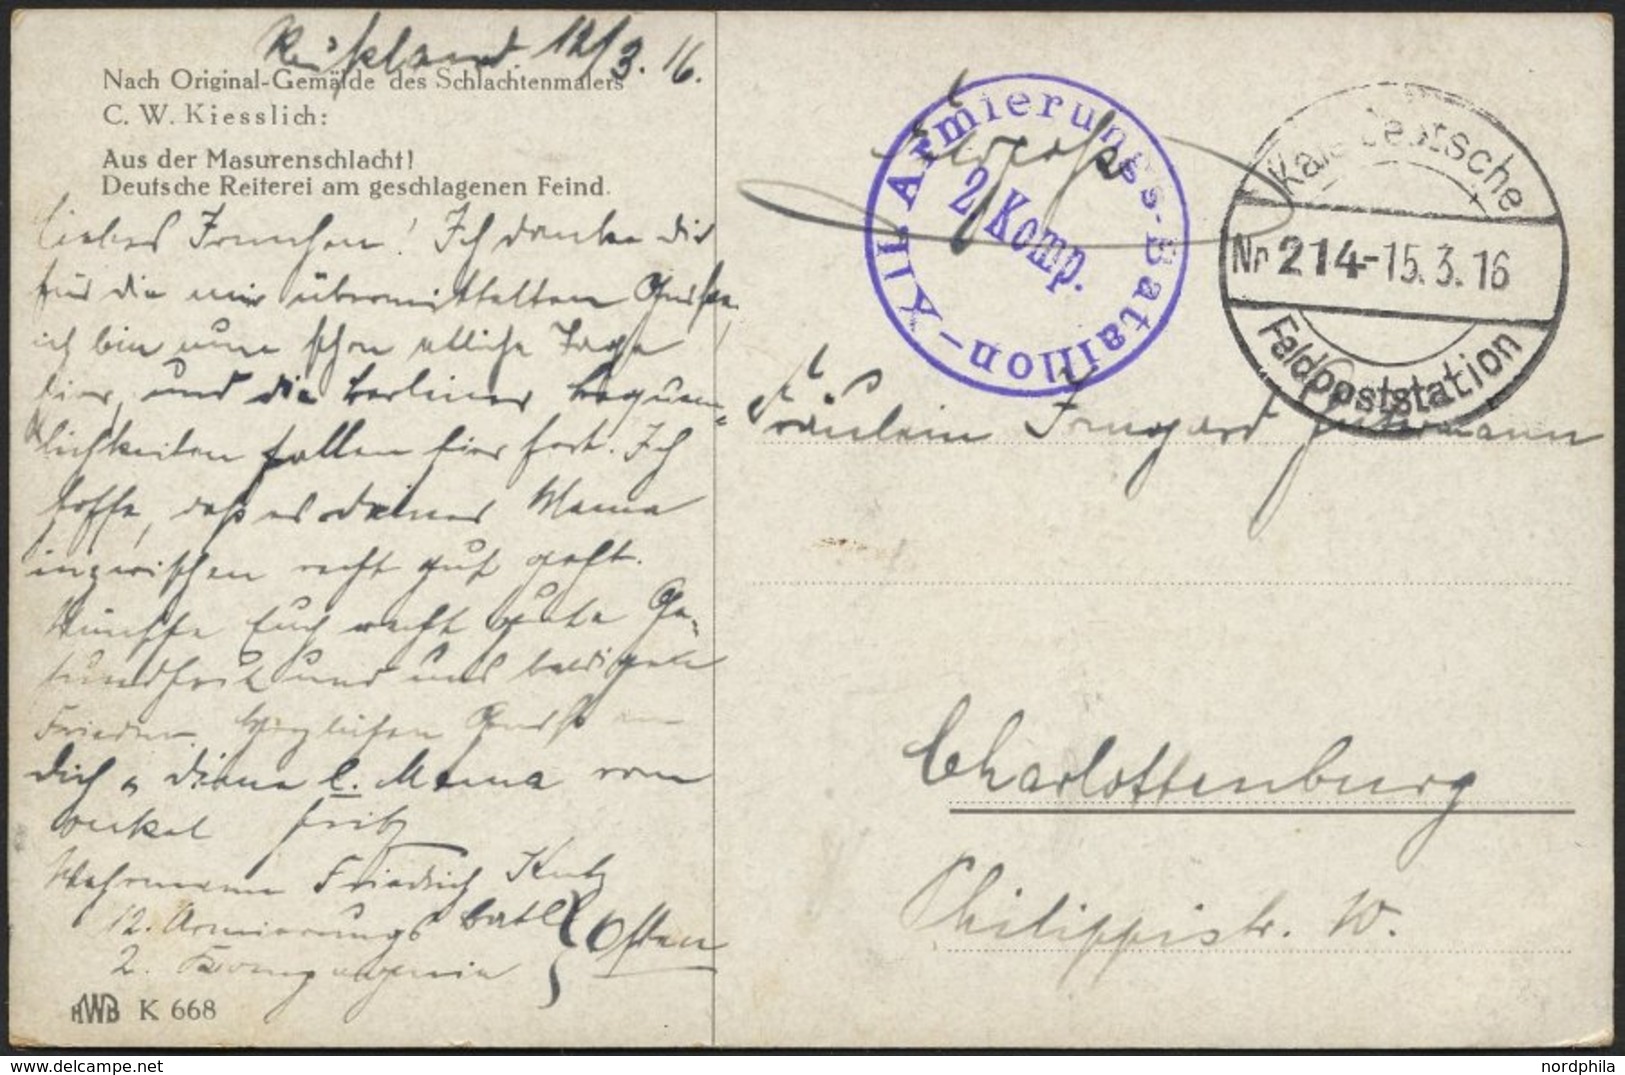 Rußland. 12/3. 16.
Nach Original-Gemälde des Schlachtenmalers
C. W. Kiesslich:
Aus der Masurenschlacht!
Deutsche Reiterei am geschlagenen Feind.
Liebes Irmchen! Ich danke dir
für die mir übermittelten Grüße,
ich bin nun schon etliche Tage
hier, und die Berliner Bequem=
lichkeiten fallen hier fort. Ich
hoffe, daß es deiner Mama
inzwischen recht gut geht.
Wünsche Euch recht gute Ge=
sundheit und uns baldigen
Frieden. Herzlichen Gruß an
dich u. deine l. Mama von
Onkel Fritz
Wehrmann Friedrich
12. Armierungs Batl.
2. Kompagnie
Osten
HWB K 668
Feldpost
XII. Armierungs-Bataillon
2. Komp.
Kais. Deutsche
Nr 214 - 15.3.16
Feldpoststation
Fräulein Irmgard
Charlottenburg
Philippistr. W.
© nordphila